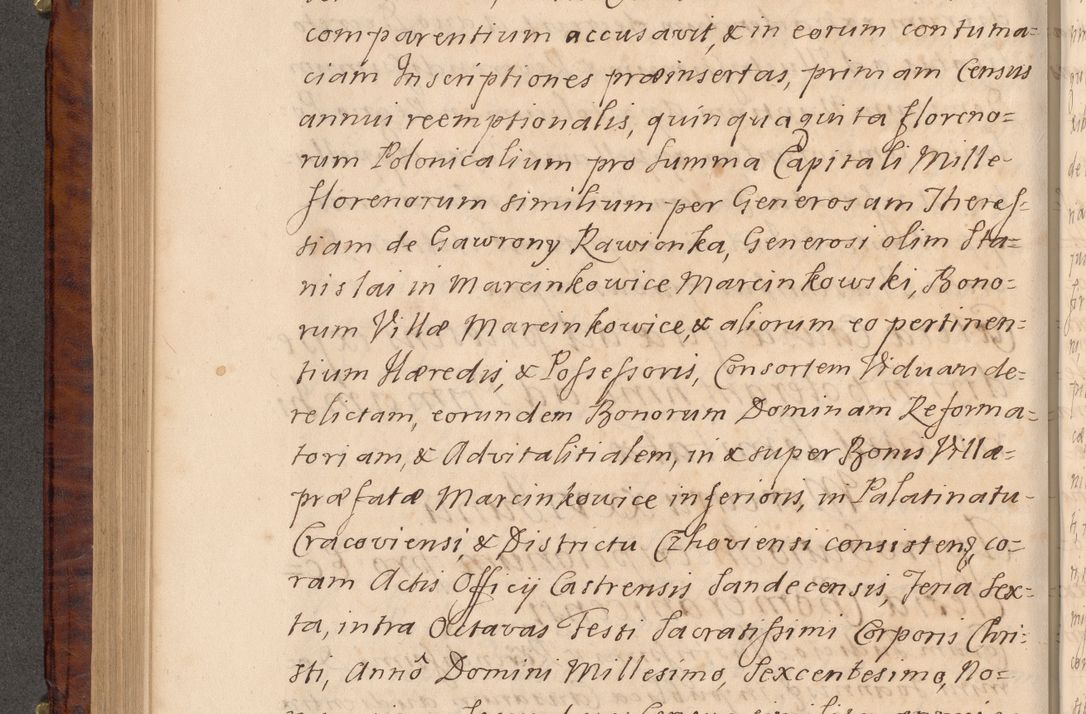 comparentium accusavit, & in eorum contuma=
ciam Inscriptiones præinsertas, primam Census
annui reemptionalis, quinquaginta floreno=
rum Polonicalium pro Summa Capitali Mille
florenorum similium per Generosam Theres=
siam de Gawrony Rawionka, Generosi olim Sta=
nislai in Marcinkowice Marcinkowski, Bono=
rum Villæ Marcinkowice, & aliorum eo pertinen=
tium Hæredis, & Possessoris, Consortem Viduam de=
relictam, eorundem Bonorum Dominam Reforma=
toriam, & Advitalitialem, in & super Bonis Villæ=
præfatæ Marcinkowice inferioris, in Palatinatu
Cracoviensi, & Districtu Czhoviensi consisten[tibus], co=
ram Actis Officij Castrensis Sandecensis, Feriâ Sex=
ta, intra Octavas Festi Sacratissimi Corporis Chri=
sti, Annô Domini Millesimo, Sexcentesimo, No=